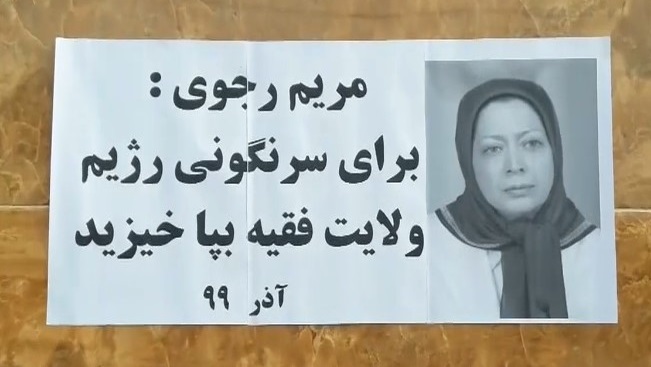 مریم رجوی :
برای سرنگونی رژیم
ولایت فقیه بپا خیزید
آذر ۹۹